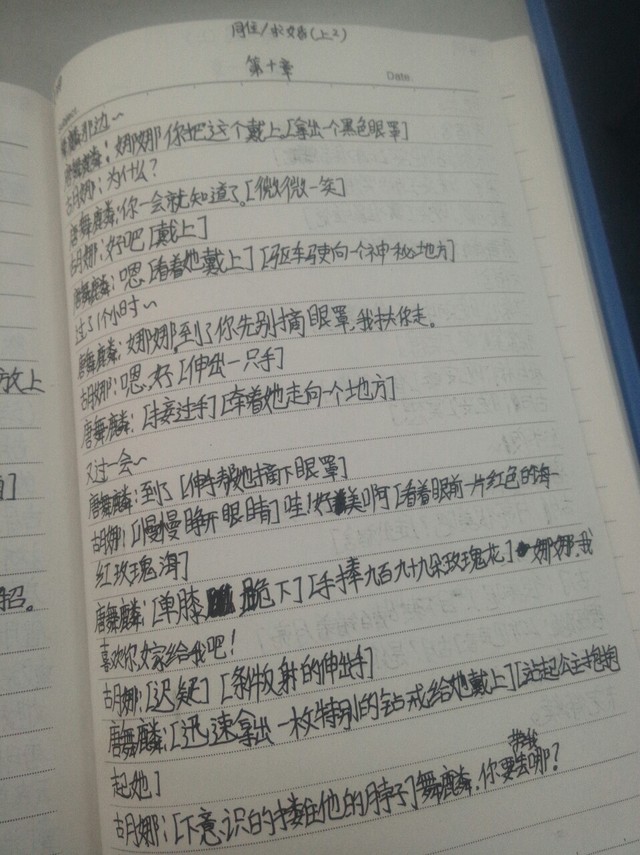 同住/求婚(上2)
第十章
Date.
麟那边~
唐舞麟:娜娜你把这个戴上。[拿出一个黑色眼罩]
古月娜:为什么?
唐舞麟:你一会就知道了。[微微一笑]
古月娜:好吧[戴上]
唐舞麟:嗯[看着她戴上][驱车驶向一个神秘地方]
过了1个小时~
唐舞麟:娜娜,到了你先别摘眼罩,我扶你走。
古月娜:嗯,好[伸出一只手]
唐舞麟:[接过手][牵着她走向一个地方]
又过一会~
唐舞麟:到了[伸手帮她摘下眼罩]
古月娜:[慢慢睁开眼睛]哇!好美啊[看着眼前一片红色的海—
红玫瑰海]
唐舞麟:[单膝跪下][手捧九百九十九朵玫瑰花]娜娜,我
喜欢你,嫁给我吧!
古月娜:[迟疑][条件反射的伸出手]
唐舞麟:[迅速拿出一枚特别的钻戒给她戴上][站起公主抱抱
起她]
古月娜:[下意识的搂住他的脖子]舞麟,你要带我去哪?
放上
招。